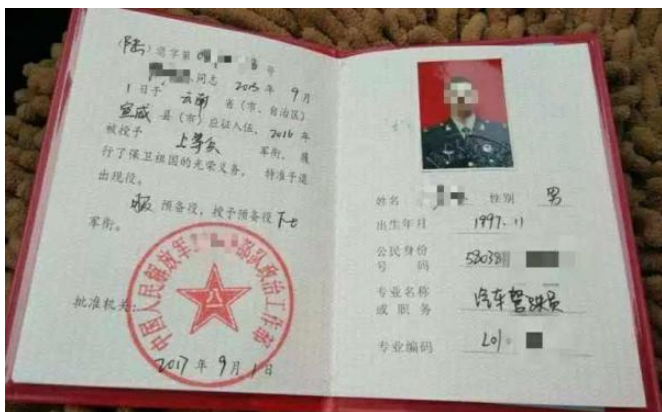 (陆)退字第 0 号
同志 2015 年 9 月
1 日于 云南 省(市、自治区)
宣威 县(市)应征入伍,2016 年
被授予 上等兵 军衔,履
行了保卫祖国的光荣义务,特准予退
出现役。
服 预备役,授予预备役 下士
军衔。
批准机关:
中国人民解放军 部队政治工作部
2017 年 9 月 1 日
姓名 性别 男
出生年月 1997.11
公民身份 58038
号码
专业名称 汽车驾驶员
或职务
专业编码 201